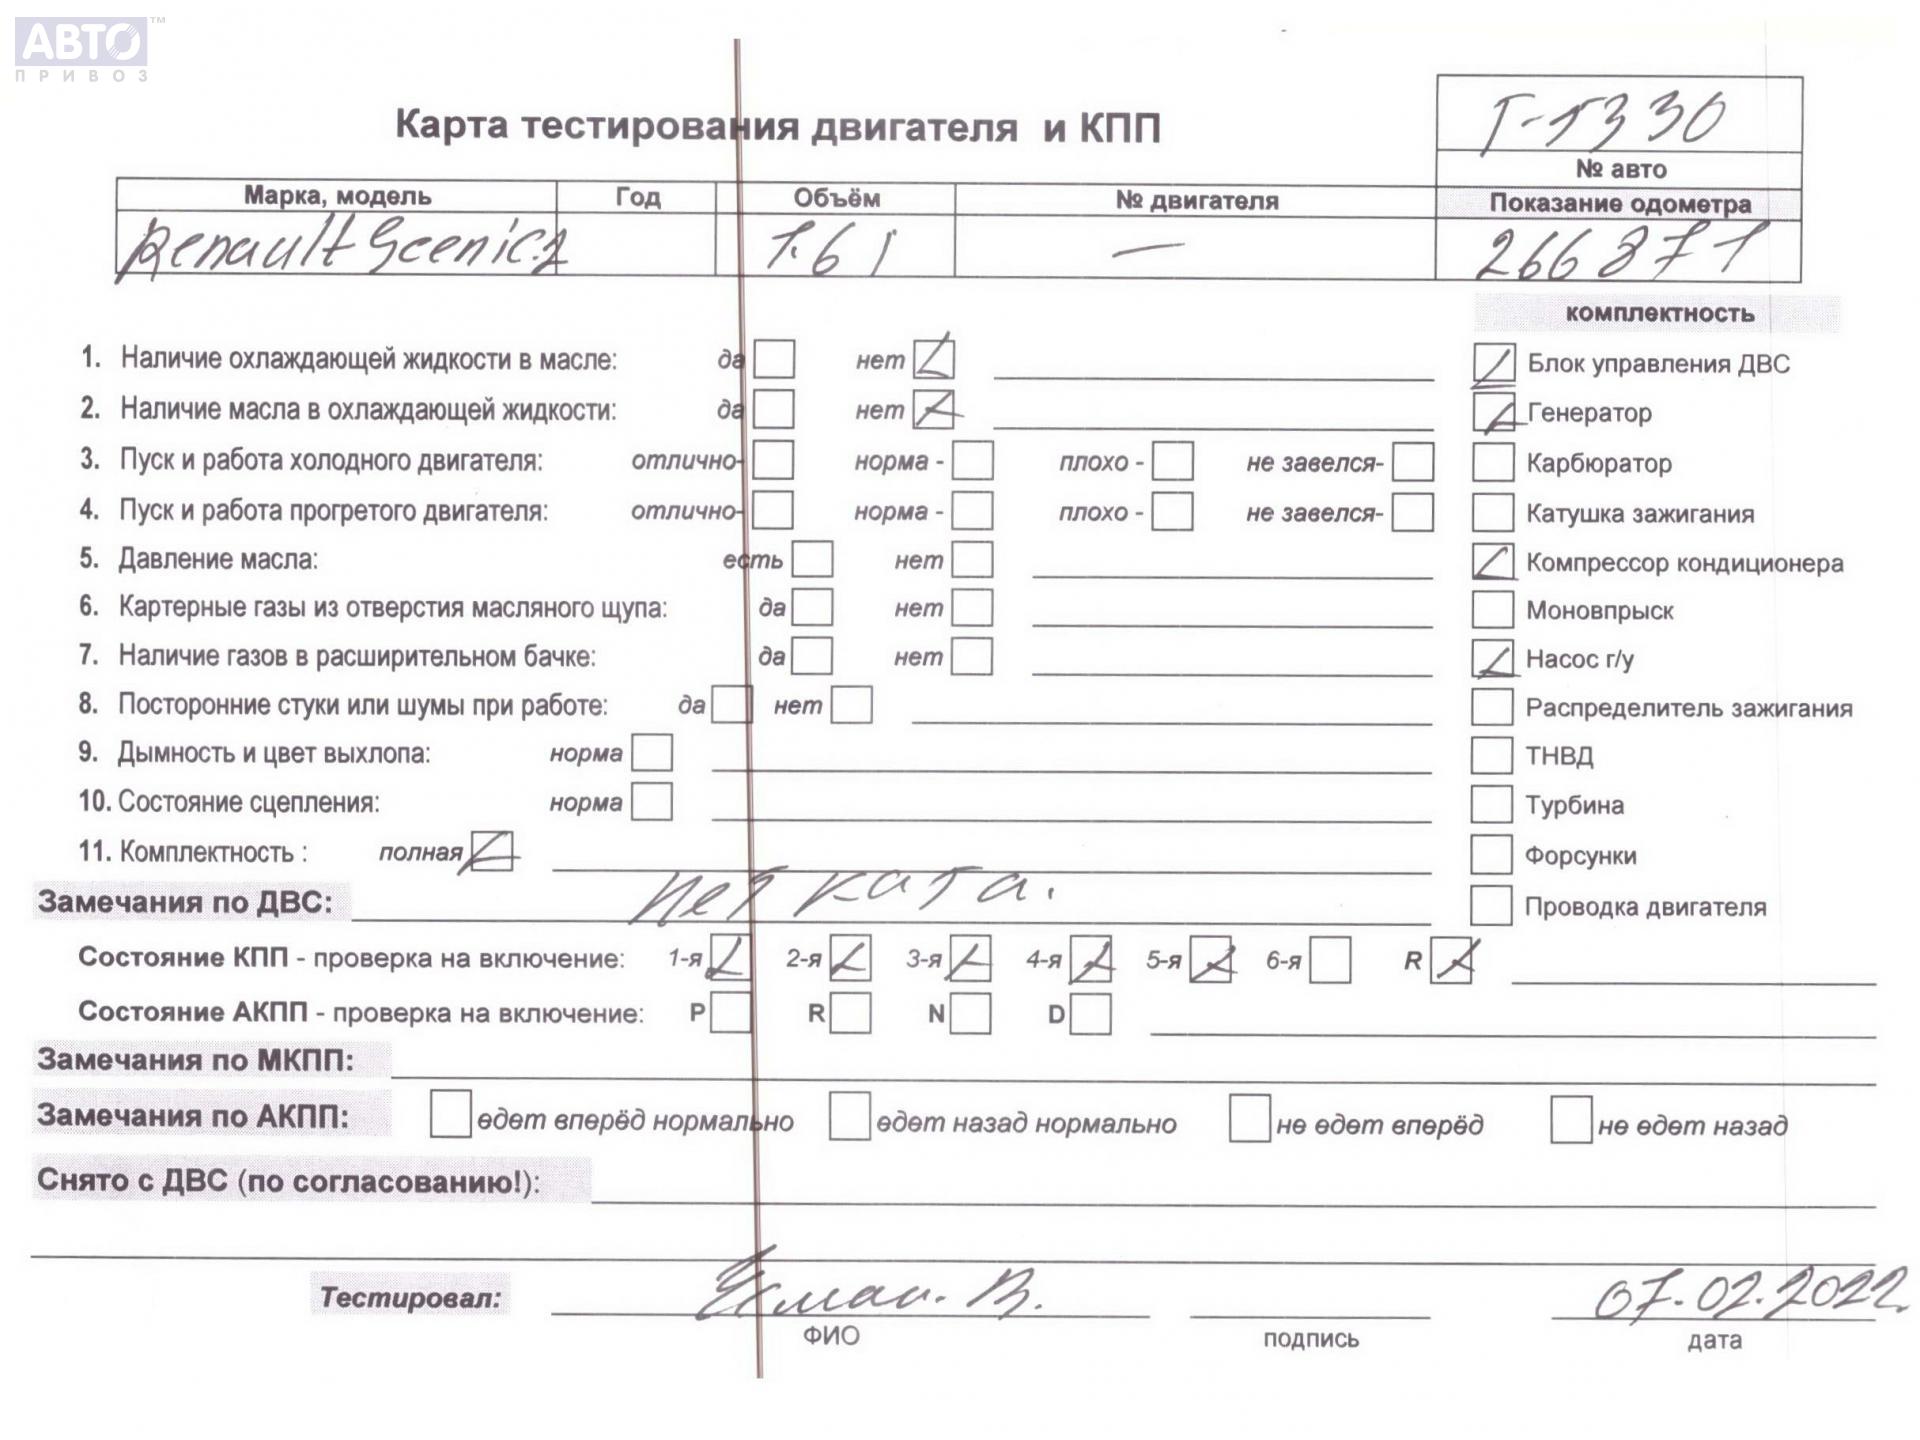 АВТО™
ПРИВОЗ
Карта тестирования двигателя и КПП
Т-1330
№ авто
Марка, модель Год Объём № двигателя Показание одометра
Renault Scenic 2 1.6 i — 266 871
комплектность
1. Наличие охлаждающей жидкости в масле: да нет Блок управления ДВС
2. Наличие масла в охлаждающей жидкости: да нет Генератор
3. Пуск и работа холодного двигателя: отлично- норма - плохо - не завелся- Карбюратор
4. Пуск и работа прогретого двигателя: отлично- норма - плохо - не завелся- Катушка зажигания
5. Давление масла: есть нет Компрессор кондиционера
6. Картерные газы из отверстия масляного щупа: да нет Моновпрыск
7. Наличие газов в расширительном бачке: да нет Насос г/у
8. Посторонние стуки или шумы при работе: да нет Распределитель зажигания
9. Дымность и цвет выхлопа: норма ТНВД
10. Состояние сцепления: норма Турбина
11. Комплектность : полная Форсунки
Замечания по ДВС: нет ката. Проводка двигателя
Состояние КПП - проверка на включение: 1-я 2-я 3-я 4-я 5-я 6-я R
Состояние АКПП - проверка на включение: P R N D
Замечания по МКПП:
Замечания по АКПП: едет вперёд нормально едет назад нормально не едет вперёд не едет назад
Снято с ДВС (по согласованию!):
Тестировал: В. 07.02.2022
ФИО подпись дата